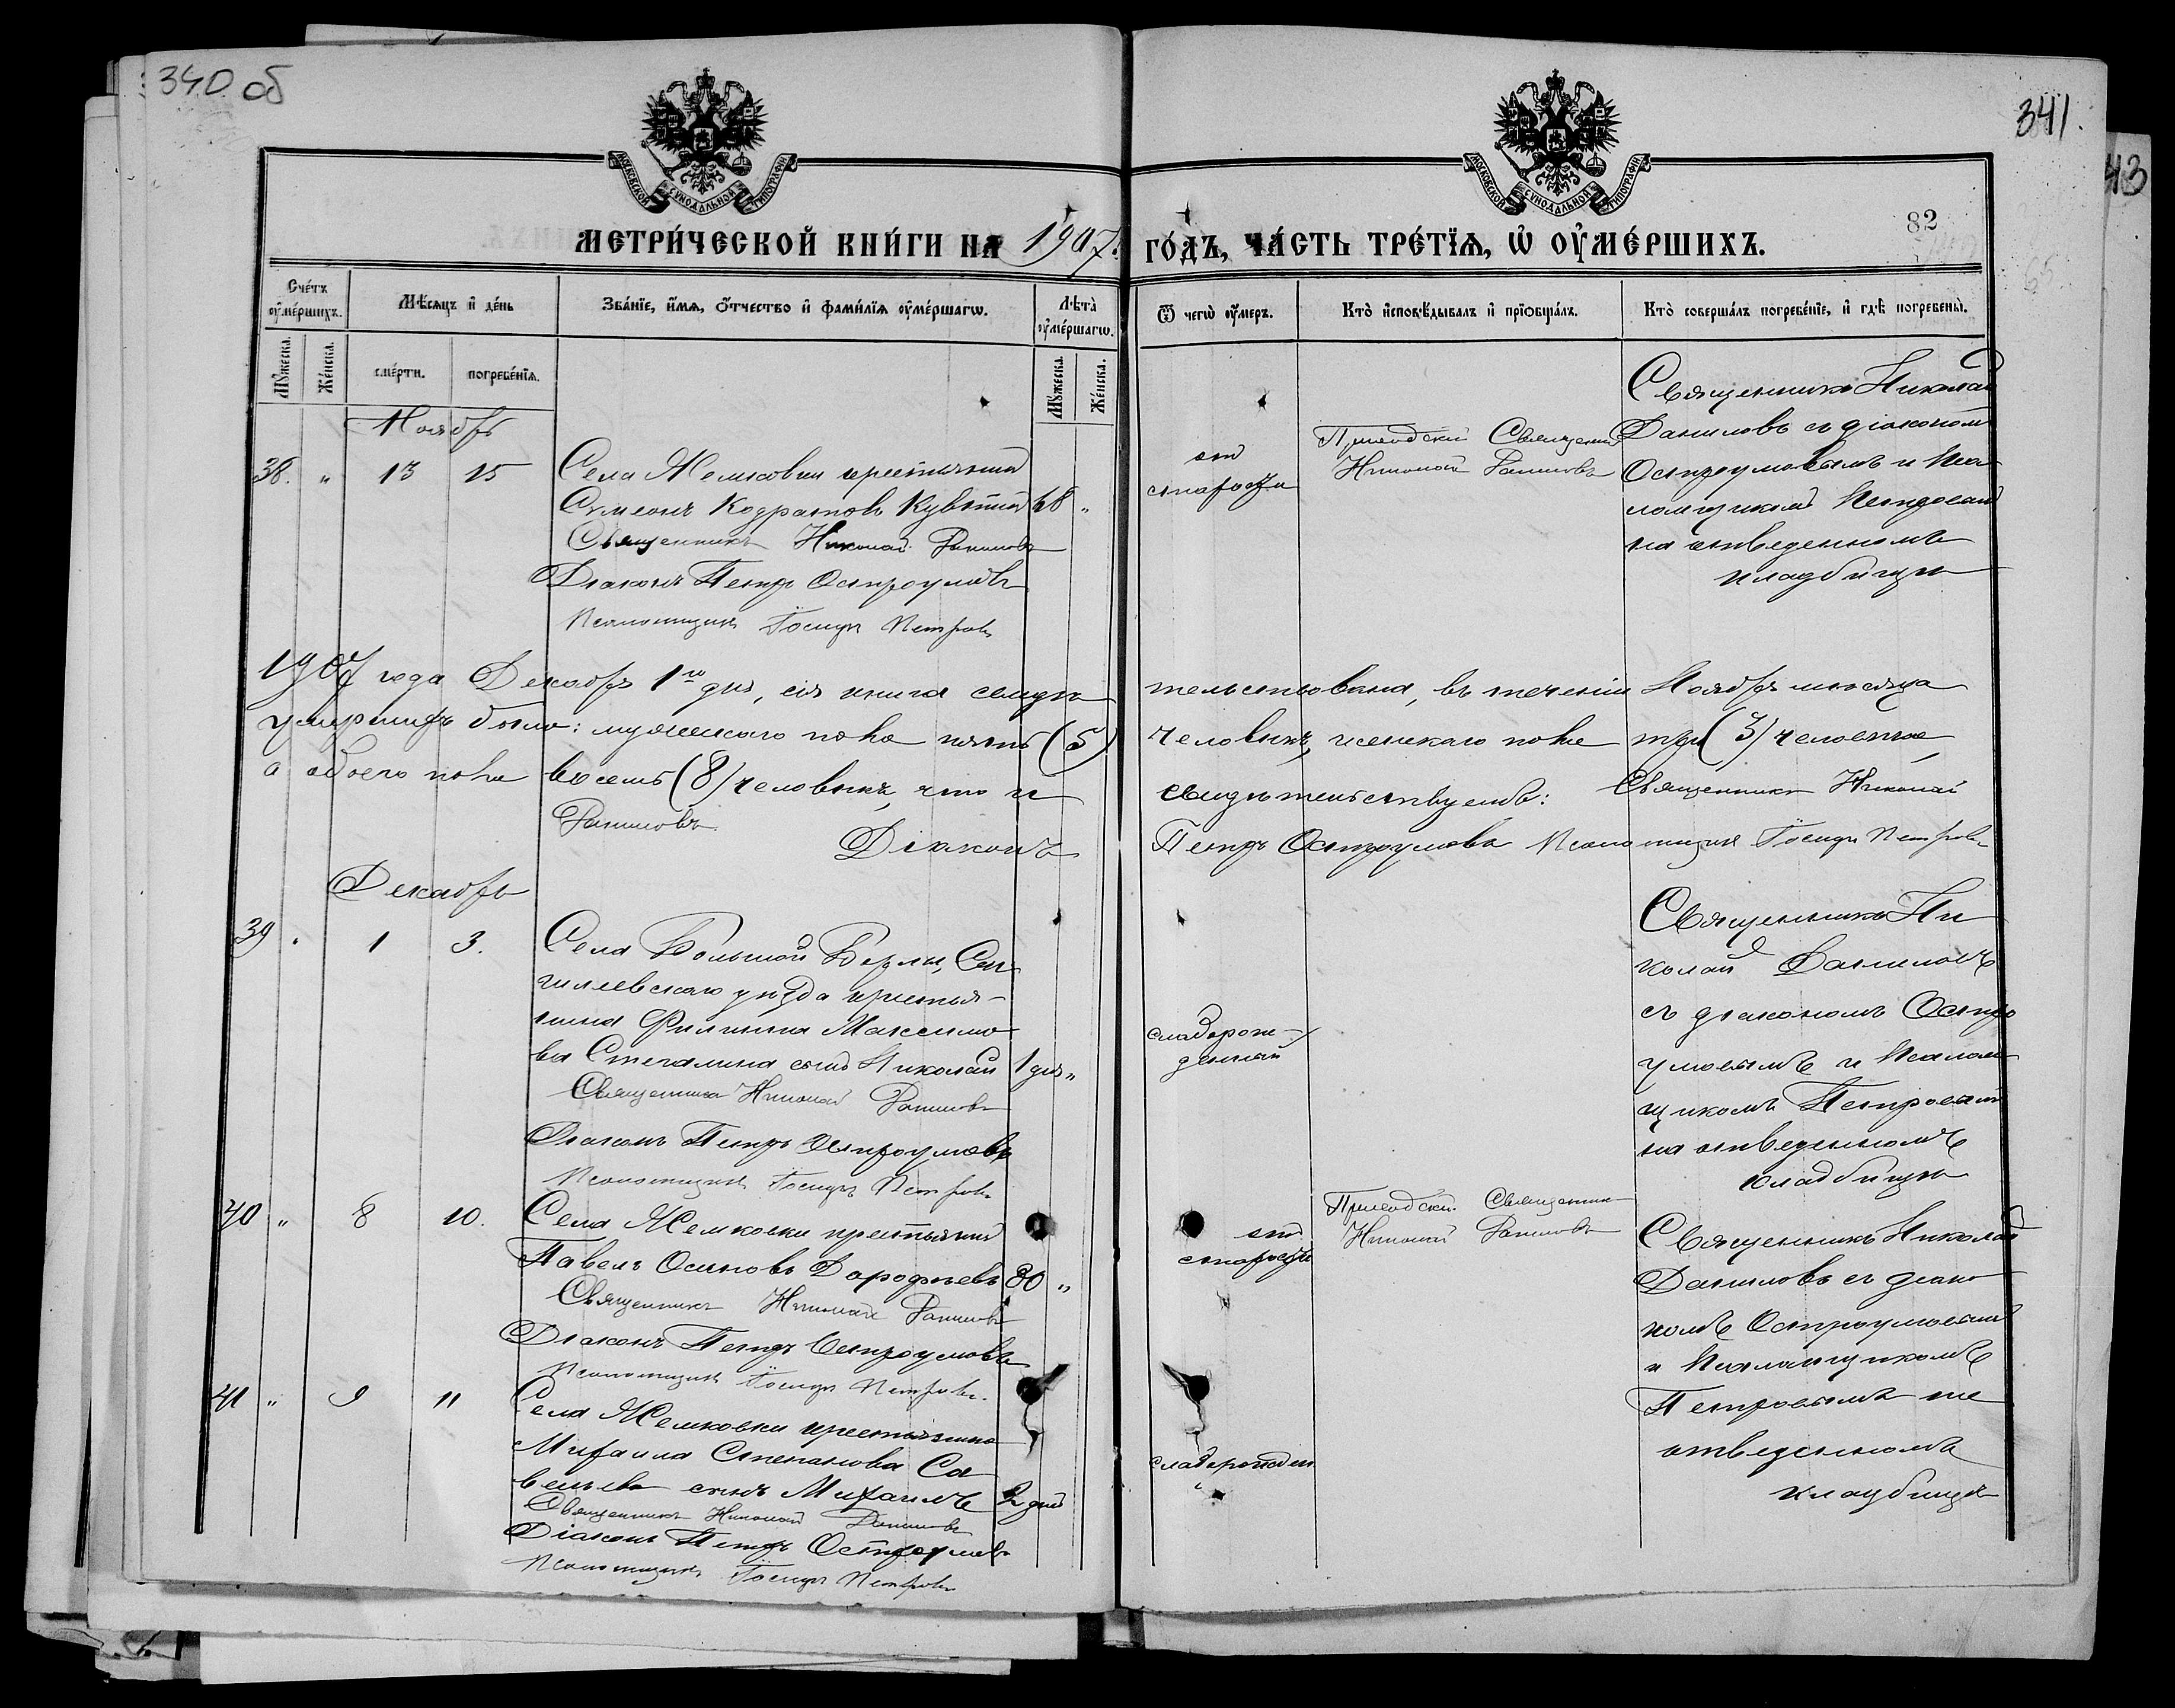 340 об
341.
43
МОСКОВСКОЙ СѴНОДАЛЬНОЙ ТИПОГРАФІИ
МОСКОВСКОЙ СѴНОДАЛЬНОЙ ТИПОГРАФІИ
82
МЕТРИ́ЧЕСКОЙ КНИ́ГИ НА 1907.
ГО́ДЪ, ЧА́СТЬ ТРЕ́ТІѦ, Ѡ҆ ОУ҆МЕ́РШИХЪ.
Сче́тъ оу҆ме́ршихъ.
Мѣ́сѧцъ и҆ де́нь
Зва́нїе, и҆́мѧ, ѻ҆́тчество и҆ фами́лїѧ оу҆ме́ршагѡ.
Лѣ́та оу҆ме́ршагѡ.
Ѿ чегѡ̀ оу҆́меръ.
Кто̀ и҆сповѣ́дывалъ и҆ прїѡбща́лъ.
Кто̀ соверша́лъ погребе́нїе, и҆ гдѣ̀ погребены̀.
Мꙋ́жеска.
Же́нска.
сме́рти.
погребе́нїѧ.
Мꙋ́жеска.
Же́нска.
Ноябрь
38. " 13 15
Села Жемковки крестьянинъ
Сѵмеонъ Кодратовъ 68 "
Священникъ Николай Даниловъ
Діаконъ Петръ Остроумовъ
Псаломщикъ Іосифъ Петровъ
отъ
старости
Приходскій Священникъ
Николай Даниловъ
Священникъ Николай
Даниловъ съ діакономъ
Остроумовымъ и Пса
ломщикомъ Петровымъ
на отведенномъ
кладбищѣ
1907 года Декабря 1го дня, сія книга свидѣ
тельствована, въ теченіи Ноября мѣсяца
умершихъ было: мужескаго пола пять (5)
человѣкъ, женскаго пола три (3) человѣка,
а обоего пола восемь (8) человѣкъ, что и
свидѣтельствуемъ: Священникъ Николай
Даниловъ. Діаконъ
Петръ Остроумовъ Псаломщикъ Іосифъ Петровъ
Декабрь
39 " 1 3.
Села Большой Борлы, Сен
гилеевскаго уѣзда крестья-
нина Филиппа Максимо
ва сынъ Николай 1 дня "
Священникъ Николай Даниловъ
Діаконъ Петръ Остроумовъ
Псаломщикъ Іосифъ Петровъ
слаборож-
денный
Священникъ Ни
колай Даниловъ
съ діакономъ Остро
умовымъ и Псалом
щикомъ Петровымъ
на отведенномъ
кладбищѣ
40 " 8 10.
Села Жемковки крестьянинъ
Павелъ Осиповъ Дорофѣевъ 80 "
Священникъ Николай Даниловъ
Діаконъ Петръ Остроумовъ
Псаломщикъ Іосифъ Петровъ.
отъ
старости
Приходскій Священникъ
Николай Даниловъ
Священникъ Николай
Даниловъ съ діако
номъ Остроумовымъ
и Псаломщикомъ
Петровымъ на
отведенномъ
кладбищѣ
41 " 9 11
Села Жемковки крестьянина
Михаила Степанова Са
вельева сынъ Михаилъ 2 дней
Священникъ Николай Даниловъ
Діаконъ Петръ Остроумовъ
Псаломщикъ Іосифъ Петровъ
слаборожден